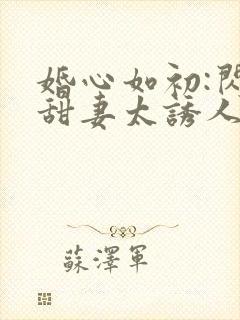 婚心如初:閃
甜妻太誘人
蘇澤軍